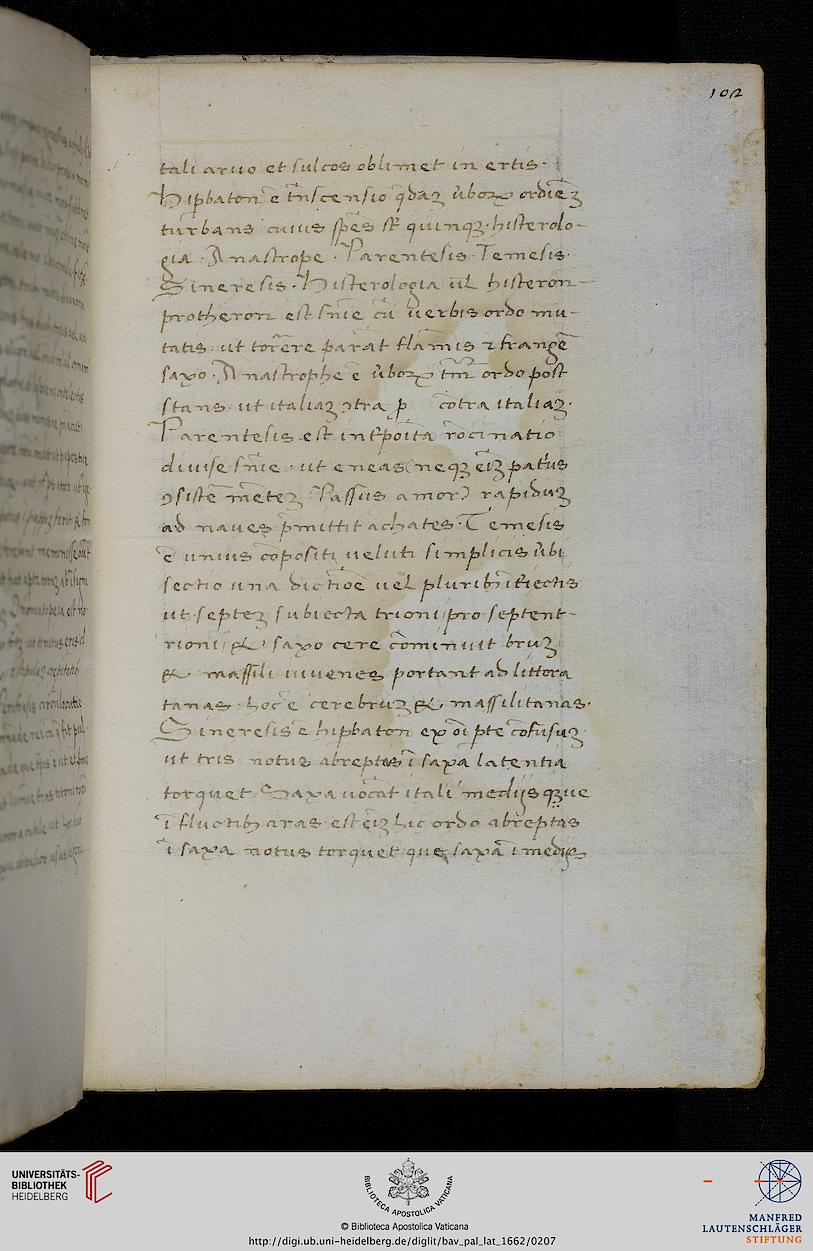 102
tali aruo et sulcos oblimet in ertis.
Hipbaton ē trãscensio q̃daʒ ũboꝝ ordiẽʒ
turbans cuius spẽs st̃ quinqʒ. histerolo-
gia. Anastrope. Parentesis. Temesis.
Sineresis. Histerologia ul̃ histeron-
protheron est sñie cũ uerbis ordo mu-
tatis. ut torẽre parãt flãmis ⁊ frangẽ
saxo. Anastrophe ē ũboꝝ tm̃ ordo post
stans. ut italiaʒ ꝯtra ꝓ cõtra italiaʒ.
Parentesis est int̃poita rõcinatio
diuise sñie. ut eneas (neqʒ eĩʒ pat'us
ꝯsistẽ mẽteʒ Passus amor) rapiduʒ
ad naues p̃mittit achates. Temesis
ē unius cõpositi ueluti simplicis ũbi
sectio una dictiõe uel plurib; ĩt̃iectis
ut. septeʒ subiecta trioni pro septent-
rioni & saxo cere cõminuit bruʒ
& massili iuuenes portant ad littora
tanas. hoc ē cerebruʒ & massilitanas.
Sineresis ē hipbaton ex oĩ pte cõfusuʒ
ut tris notus abreptas ĩ saxa latentia
torquet Saxa uocãt itali medijs qʒue
ĩ fluctib; aras. est eĩʒ hic ordo abreptas
ĩ saxa notus torquet que saxa ĩ medijs
UNIVERSITÄTS-
BIBLIOTHEK
HEIDELBERG
BIBLIOTECA APOSTOLICA VATICANA
© Biblioteca Apostolica Vaticana
http://digi.ub.uni-heidelberg.de/diglit/bav_pal_lat_1662/0207
MANFRED
LAUTENSCHLÄGER
STIFTUNG